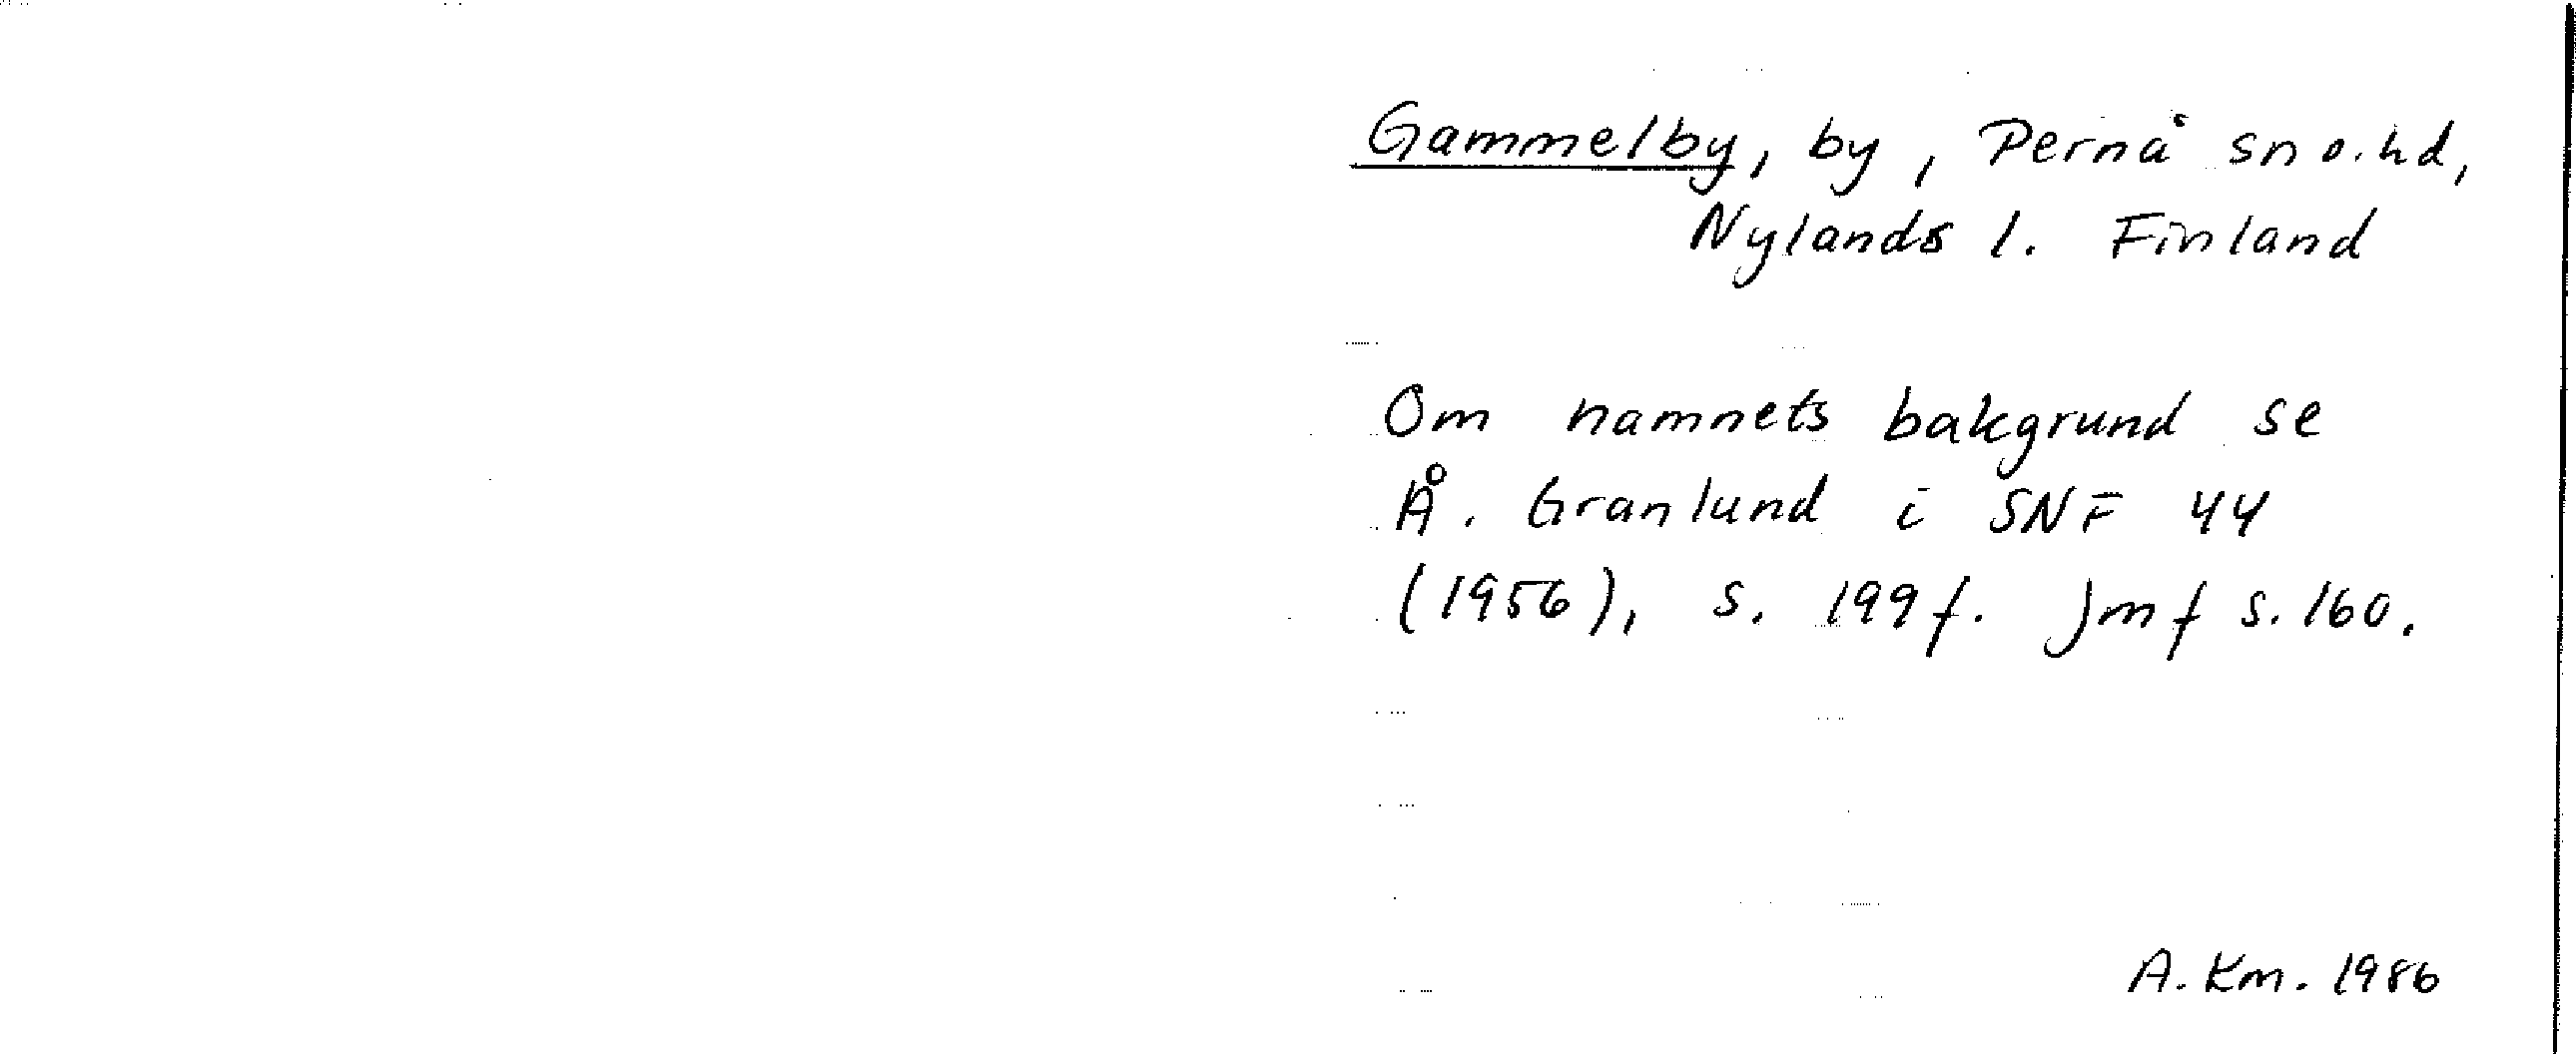 Gammelby, by, Pernå sn o. hd,
Nylands l. Finland
Om namnets bakgrund se
Å. Granlund i SNF 44
(1956), s. 199 f. Jmf s. 160.
A. Km. 1986